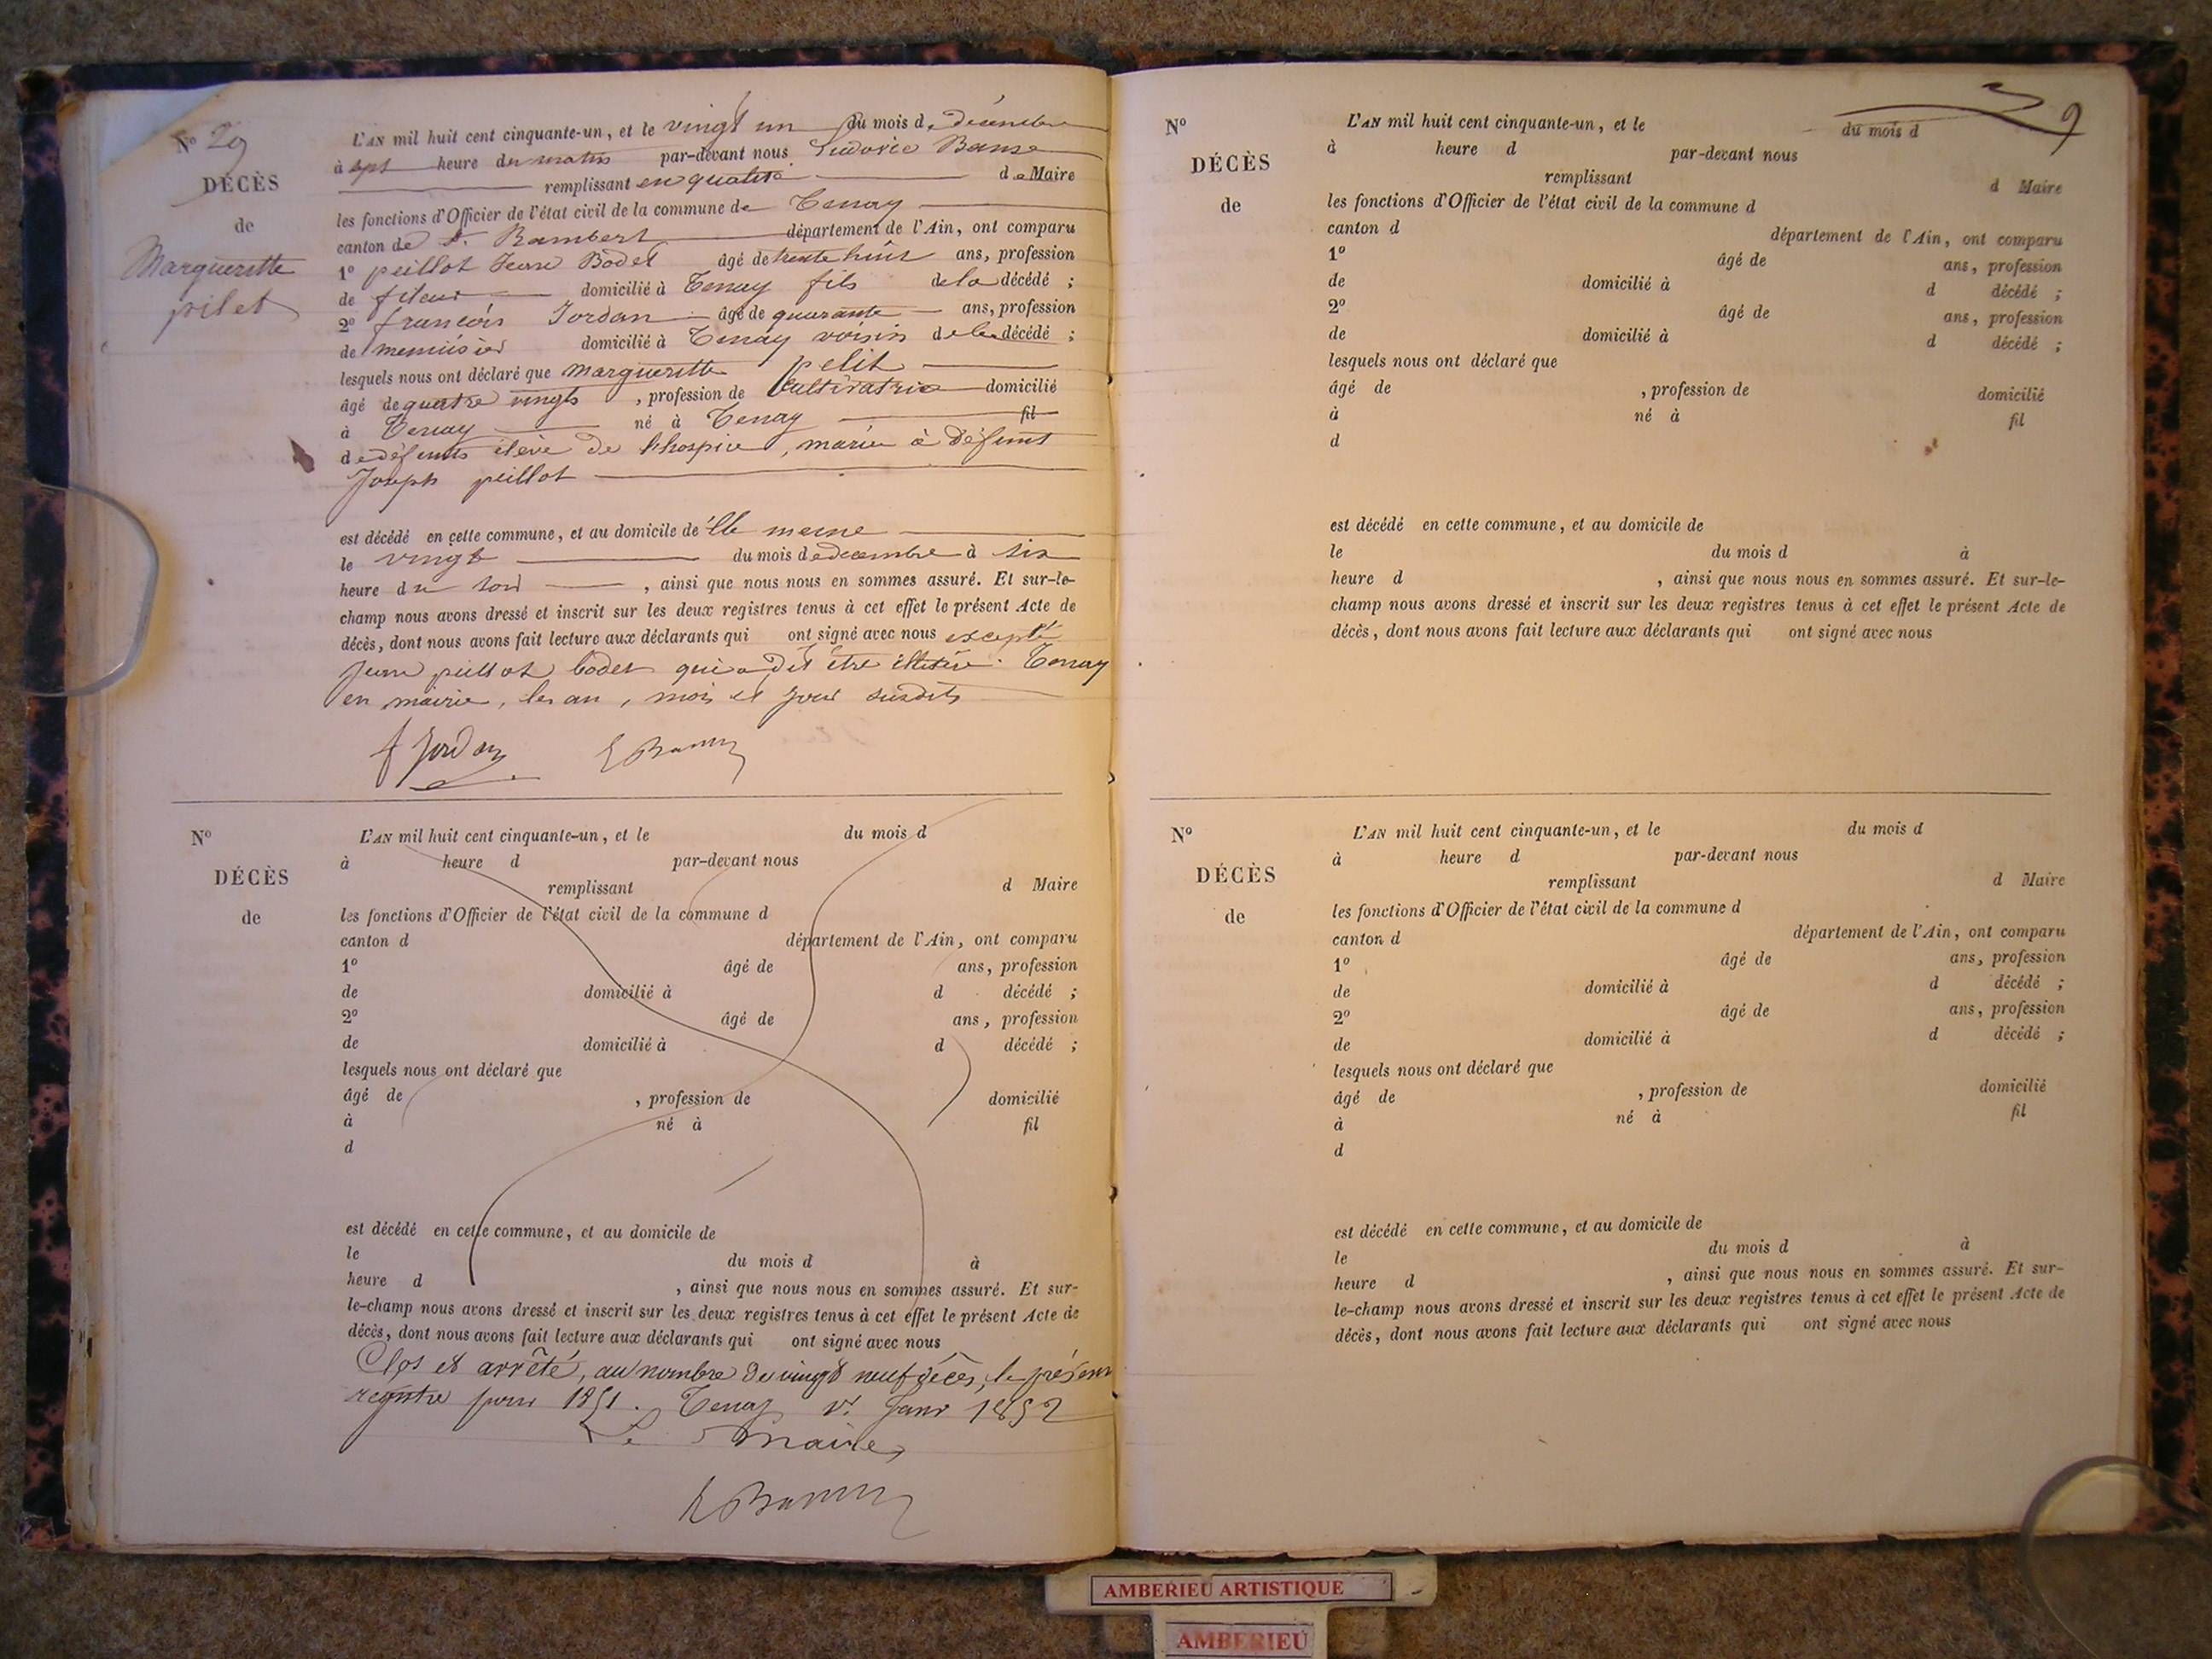 Nº 29
DÉCÈS
de
Marguerite
pilet
L'AN mil huit cent cinquante-un, et le vingt un du mois de décembre
à sept heure du matin par-devant nous Ludovic
remplissant en qualité de Maire
les fonctions d'Officier de l'état civil de la commune de Tenay
canton de St. Rambert département de l'Ain, ont comparu
1º peillot Jean Bodet âgé de trente huit ans, profession
de fileur domicilié à Tenay fils de la décédé ;
2º françois Jordan âgé de quarante ans, profession
de menuisier domicilié à Tenay voisin de la décédé ;
lesquels nous ont déclaré que marguerite pelit
âgé de quatre vingts , profession de Cultivatrice domicilié
à Tenay né à Tenay fil
de défunts élève de l'hospice, mariée à défunt
Joseph peillot
est décédé en cette commune, et au domicile de elle meme
le vingt du mois de decembre à six
heure du soir , ainsi que nous nous en sommes assuré. Et sur-le-
champ nous avons dressé et inscrit sur les deux registres tenus à cet effet le présent Acte de
décès, dont nous avons fait lecture aux déclarants qui ont signé avec nous excepté
Jean peillot bodet qui a dit être illitéré. Tenay
en mairie, les an, mois et jour susdits
f Jordan
Nº
DÉCÈS
de
L'AN mil huit cent cinquante-un, et le du mois d
à heure d par-devant nous
remplissant d Maire
les fonctions d'Officier de l'état civil de la commune d
canton d département de l'Ain, ont comparu
1º âgé de ans, profession
de domicilié à d décédé ;
2º âgé de ans, profession
de domicilié à d décédé ;
lesquels nous ont déclaré que
âgé de , profession de domicilié
à né à fil
d
est décédé en cette commune, et au domicile de
le du mois d à
heure d , ainsi que nous nous en sommes assuré. Et sur-
le-champ nous avons dressé et inscrit sur les deux registres tenus à cet effet le présent Acte de
décès, dont nous avons fait lecture aux déclarants qui ont signé avec nous
Clos et arrêté, au nombre de vingt neuf décès, le présent
registre pour 1851. Tenay Janv 1852
Le Maire
9
Nº
DÉCÈS
de
L'AN mil huit cent cinquante-un, et le du mois d
à heure d par-devant nous
remplissant d Maire
les fonctions d'Officier de l'état civil de la commune d
canton d département de l'Ain, ont comparu
1º âgé de ans, profession
de domicilié à d décédé ;
2º âgé de ans, profession
de domicilié à d décédé ;
lesquels nous ont déclaré que
âgé de , profession de domicilié
à né à fil
d
est décédé en cette commune, et au domicile de
le du mois d à
heure d , ainsi que nous nous en sommes assuré. Et sur-le-
champ nous avons dressé et inscrit sur les deux registres tenus à cet effet le présent Acte de
décès, dont nous avons fait lecture aux déclarants qui ont signé avec nous
Nº
DÉCÈS
de
L'AN mil huit cent cinquante-un, et le du mois d
à heure d par-devant nous
remplissant d Maire
les fonctions d'Officier de l'état civil de la commune d
canton d département de l'Ain, ont comparu
1º âgé de ans, profession
de domicilié à d décédé ;
2º âgé de ans, profession
de domicilié à d décédé ;
lesquels nous ont déclaré que
âgé de , profession de domicilié
à né à fil
d
est décédé en cette commune, et au domicile de
le du mois d à
heure d , ainsi que nous nous en sommes assuré. Et sur-
le-champ nous avons dressé et inscrit sur les deux registres tenus à cet effet le présent Acte de
décès, dont nous avons fait lecture aux déclarants qui ont signé avec nous
AMBERIEU ARTISTIQUE
AMBERIEU